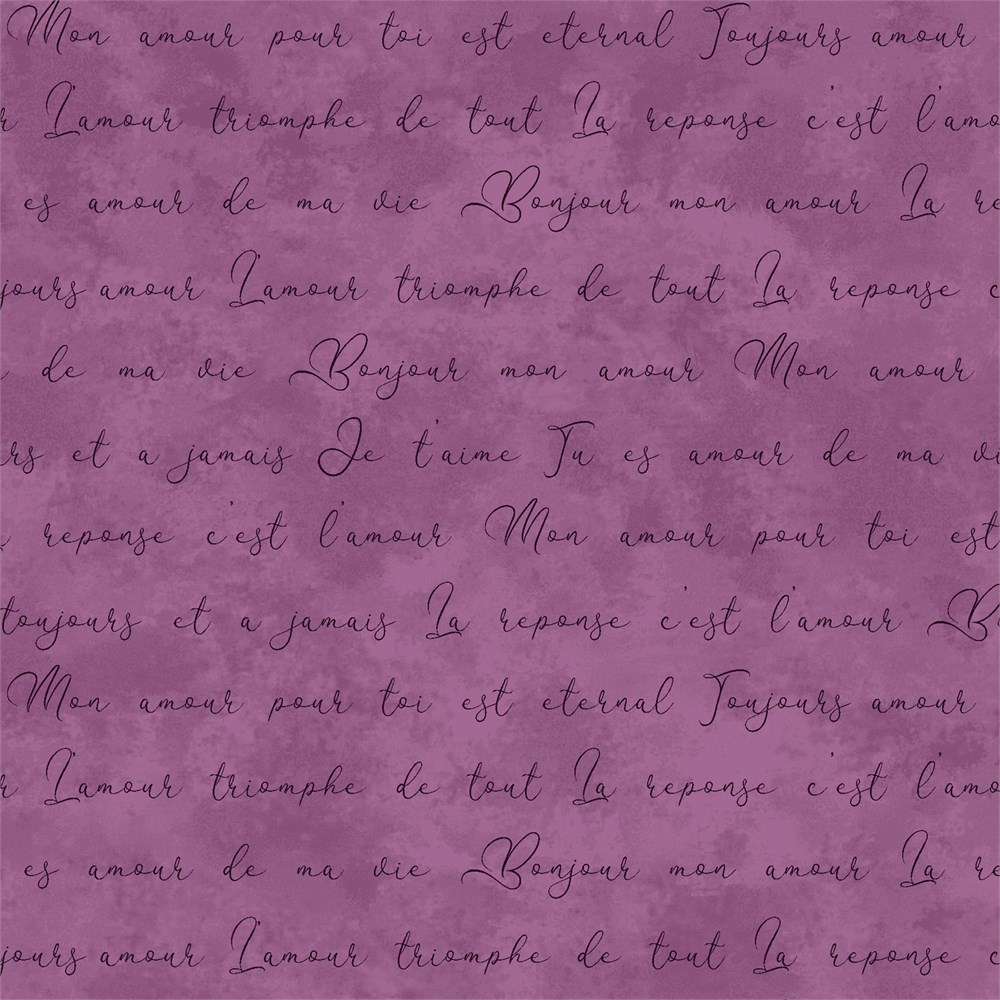 Mon amour pour toi est eternal Toujours amour
r L'amour triomphe de tout La reponse c'est l'amo
es amour de ma vie Bonjour mon amour La re
jours amour L'amour triomphe de tout La reponse c
de ma vie Bonjour mon amour Mon amour
rs et a jamais Je t'aime Tu es amour de ma vi
reponse c'est l'amour Mon amour pour toi est
toujours et a jamais La reponse c'est l'amour B
Mon amour pour toi est eternal Toujours amour
r L'amour triomphe de tout La reponse c'est l'amo
es amour de ma vie Bonjour mon amour La re
jours amour L'amour triomphe de tout La reponse c